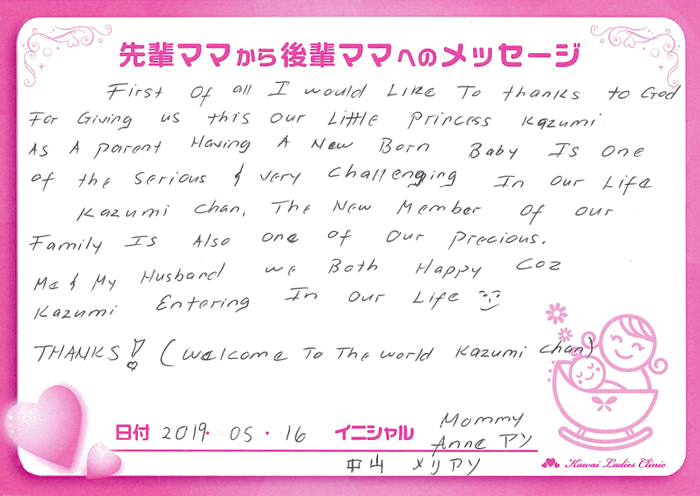 先輩ママから後輩ママへのメッセージ
First Of all I would Like To thanks to God
For Giving us this Our Little Princess Kazumi
As A parent Having A New Born Baby Is One
of the Serious & Very Challenging In Our Life
Kazumi Chan, The New Member Of our
Family Is Also one of Our Precious.
Me & My Husband we Both Happy Coz
Kazumi Entering In Our Life
THANKS! (Welcome To The world Kazumi Chan)
日付 2019・05・16 イニシャル Mommy
Anne アン
中山 メリアン
Kawai Ladies Clinic